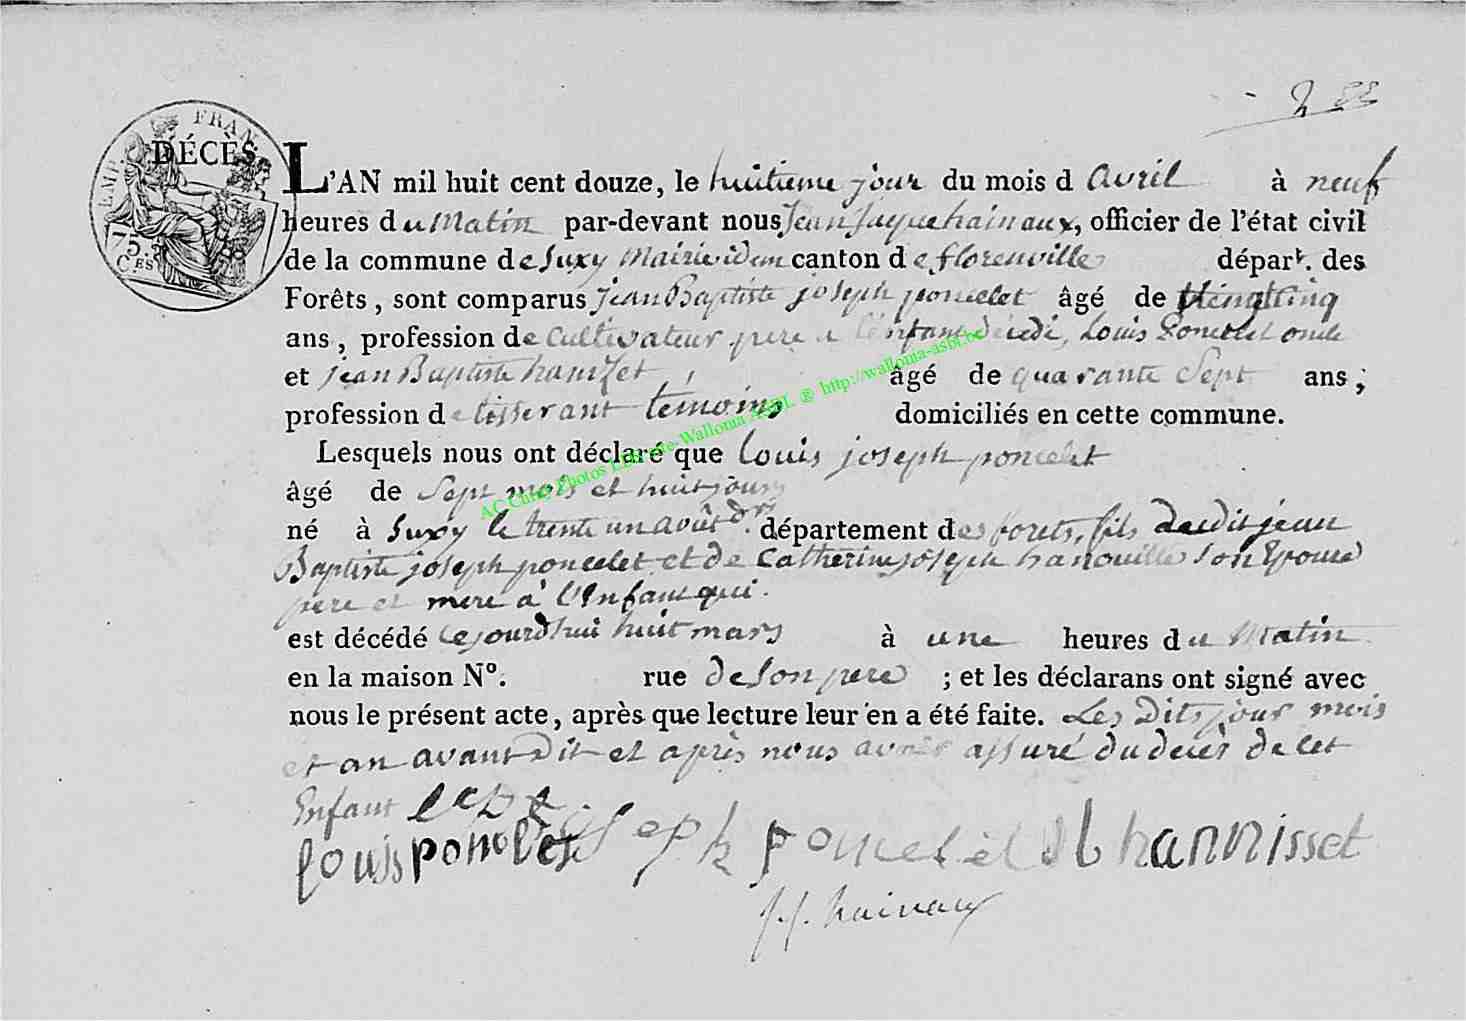 2 88
EMP. FRAN.
75. CES
DÉCÈS.
L'AN mil huit cent douze, le huitieme jour du mois d avril à neuf
heures du Matin par-devant nous Jean Jaque hainaux, officier de l'état civil
de la commune de Suxy Mairie idem canton de florenville départ. des
Forêts, sont comparus Jean Baptiste joseph poncelet âgé de
ans, profession de Cultivateur pere a l'enfant décédé, Louis Poncelet oncle
et jean Baptiste hanizet, âgé de quarante Sept ans;
profession de tisserant témoins domiciliés en cette commune.
Lesquels nous ont déclaré que Louis joseph poncelet
âgé de Sept mois et huit jours
né à Suxy le trente un août dr. département des forets, fils dudit jean
Baptiste joseph poncelet et de Catherine joseph hanouille son Epouse
pere et mere à l'Enfant qui.
est décédé Cejourdhui huit mars à une heures du Matin
en la maison N°. rue de son pere ; et les déclarans ont signé avec
nous le présent acte, après que lecture leur en a été faite. Les Dits jour mois
et an avant Dit et après nous avoir assuré du decès de cet
Enfant
louis poncelet joseph poncelet hannisset
j. j. hainaux
AC Curvy Photos LDR site Wallonia ASBL ® http://wallonia-asbl.be